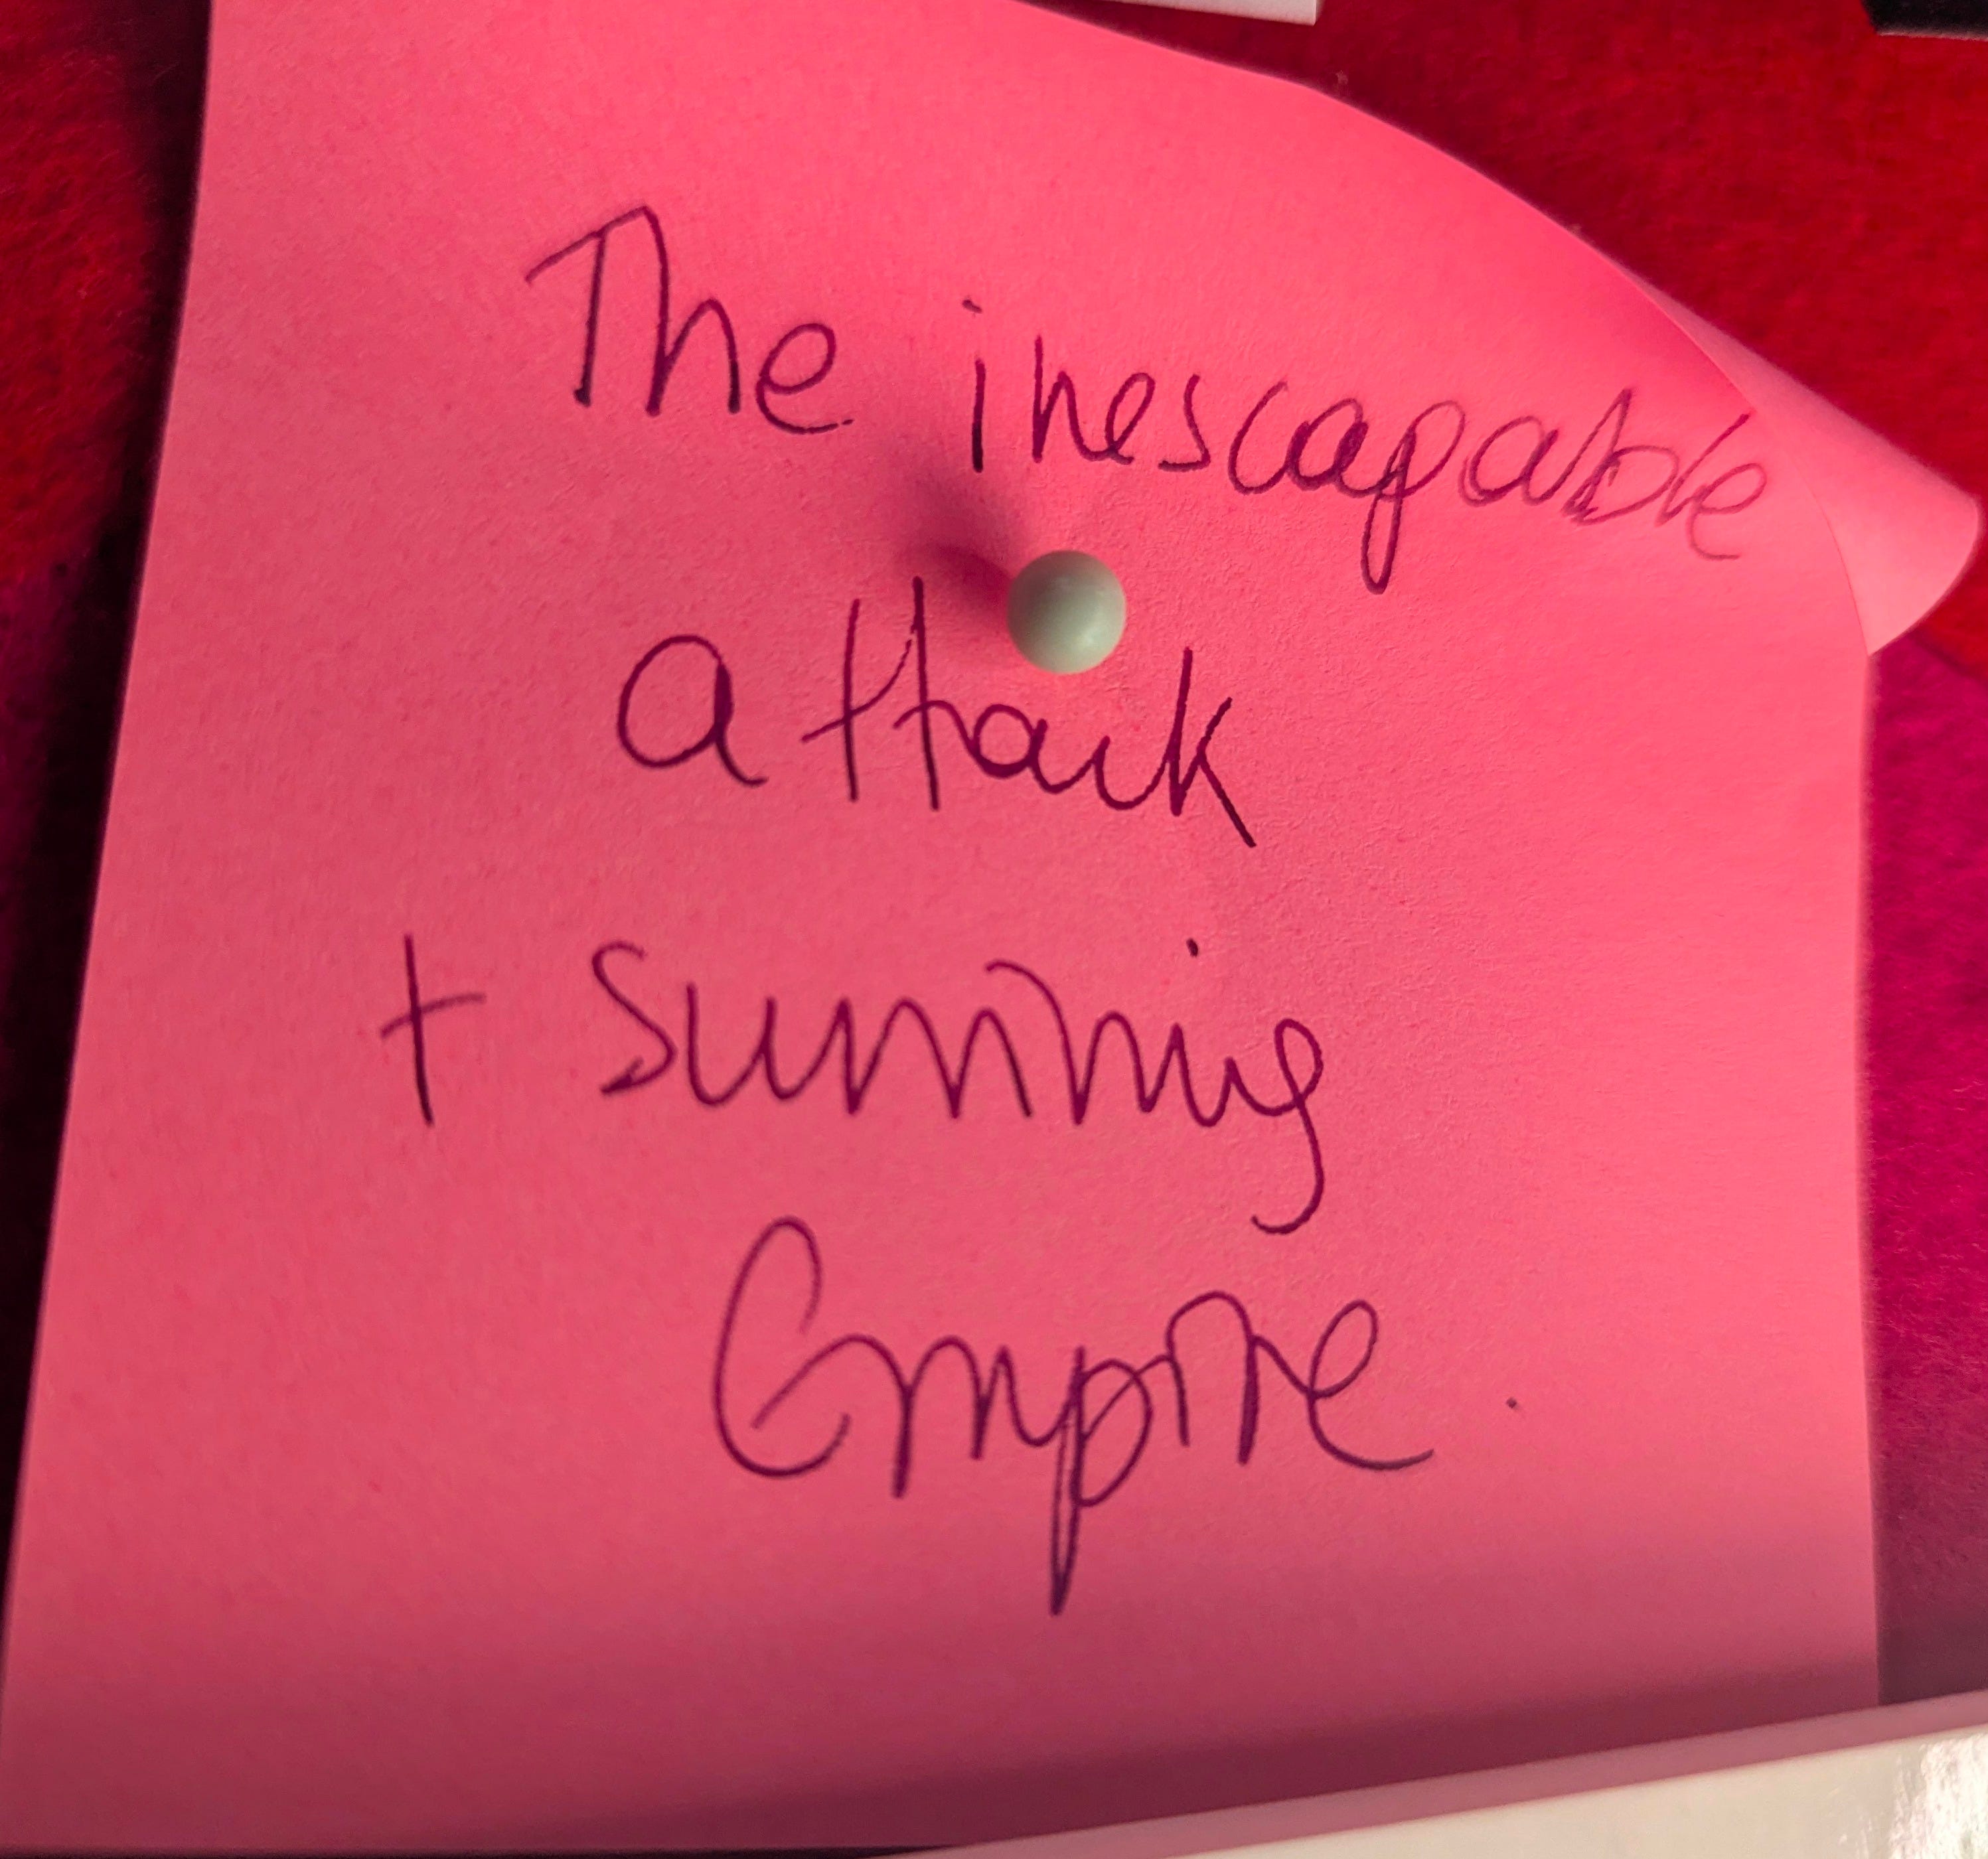 The inescapable
attack
+
Empire.